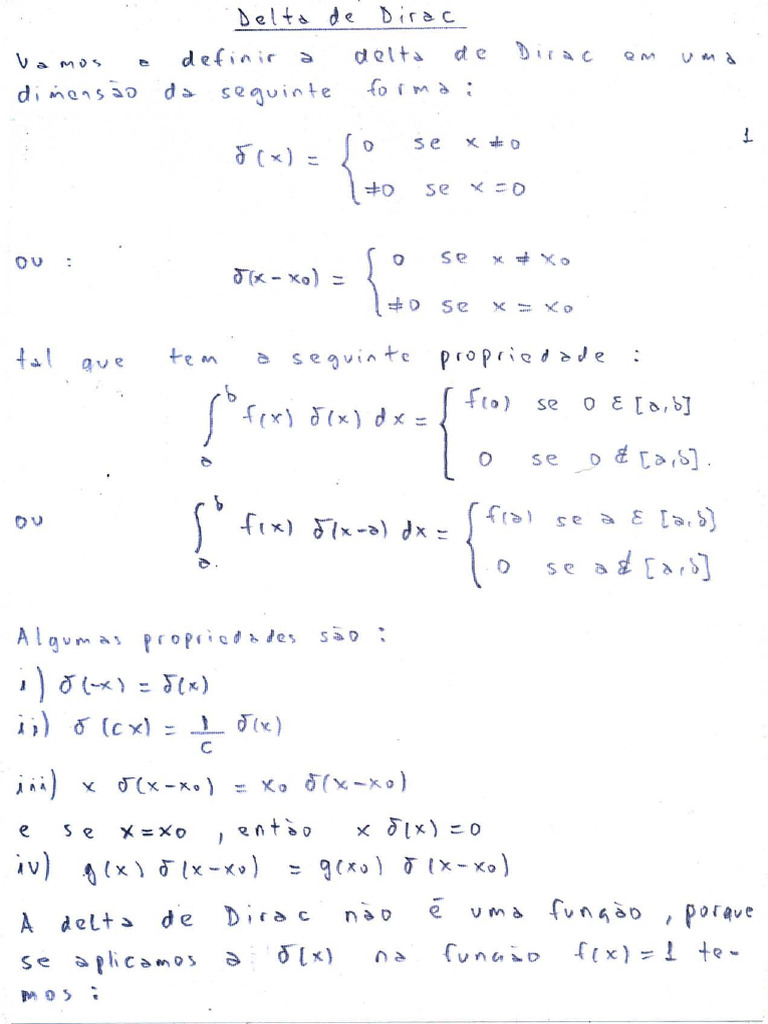 Delta de Dirac
Vamos a definir a delta de Dirac em uma
dimensão da seguinte forma:
1
δ(x) = { 0 se x ≠ 0
≠0 se x = 0
ou :
δ(x-x0) = { 0 se x ≠ x0
≠0 se x = x0
tal que tem a seguinte propriedade :
∫_a^b f(x) δ(x) dx = { f(0) se 0 ∈ [a,b]
0 se 0 ∉ [a,b].
ou
∫_a^b f(x) δ(x-a) dx = { f(a) se a ∈ [a,b]
0 se a ∉ [a,b]
Algumas propriedades são :
i) δ(-x) = δ(x)
ii) δ(cx) = 1/c δ(x)
iii) x δ(x-x0) = x0 δ(x-x0)
e se x=x0 , então x δ(x) = 0
iv) g(x) δ(x-x0) = g(x0) δ(x-x0)
A delta de Dirac não é uma função , porque
se aplicamos a δ(x) na função f(x) = 1 te-
mos :